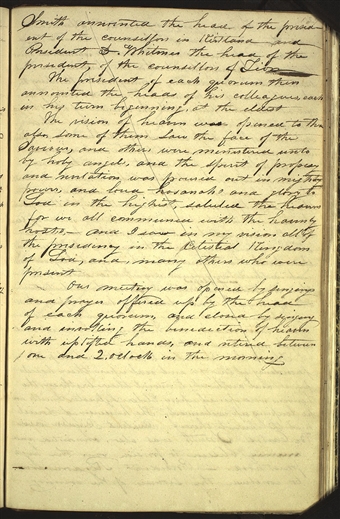 Smith annointed the head of the presid-
ent of the counsillors in Kirtland and
President D. Whitmer the head of the
president, of the counsellors of Zion—
The president of each quorum then
annointed the heads of his colleagues, each
in his turn beginning at the eldest
The vision of heaven was opened to these
also, some of them saw the face of the
Saviour, and others were ministered unto
by holy angels, and the spirit of prophesy
and revelation was poured out in mighty
power, and loud hosanahs and glory to
God in the highest, saluted the heavens
for we all communed with the heavenly
hosts,— and I saw in my vision all of
the presidency in the Celestial Kingdom
of God, and, many others who were
present
Our meeting was opened by singing
and prayer offered up by the head
of each quorum, and closed by singing
and invoking the benediction of heaven
with uplifted hands, and retired between
one and 2. oclock in the morning